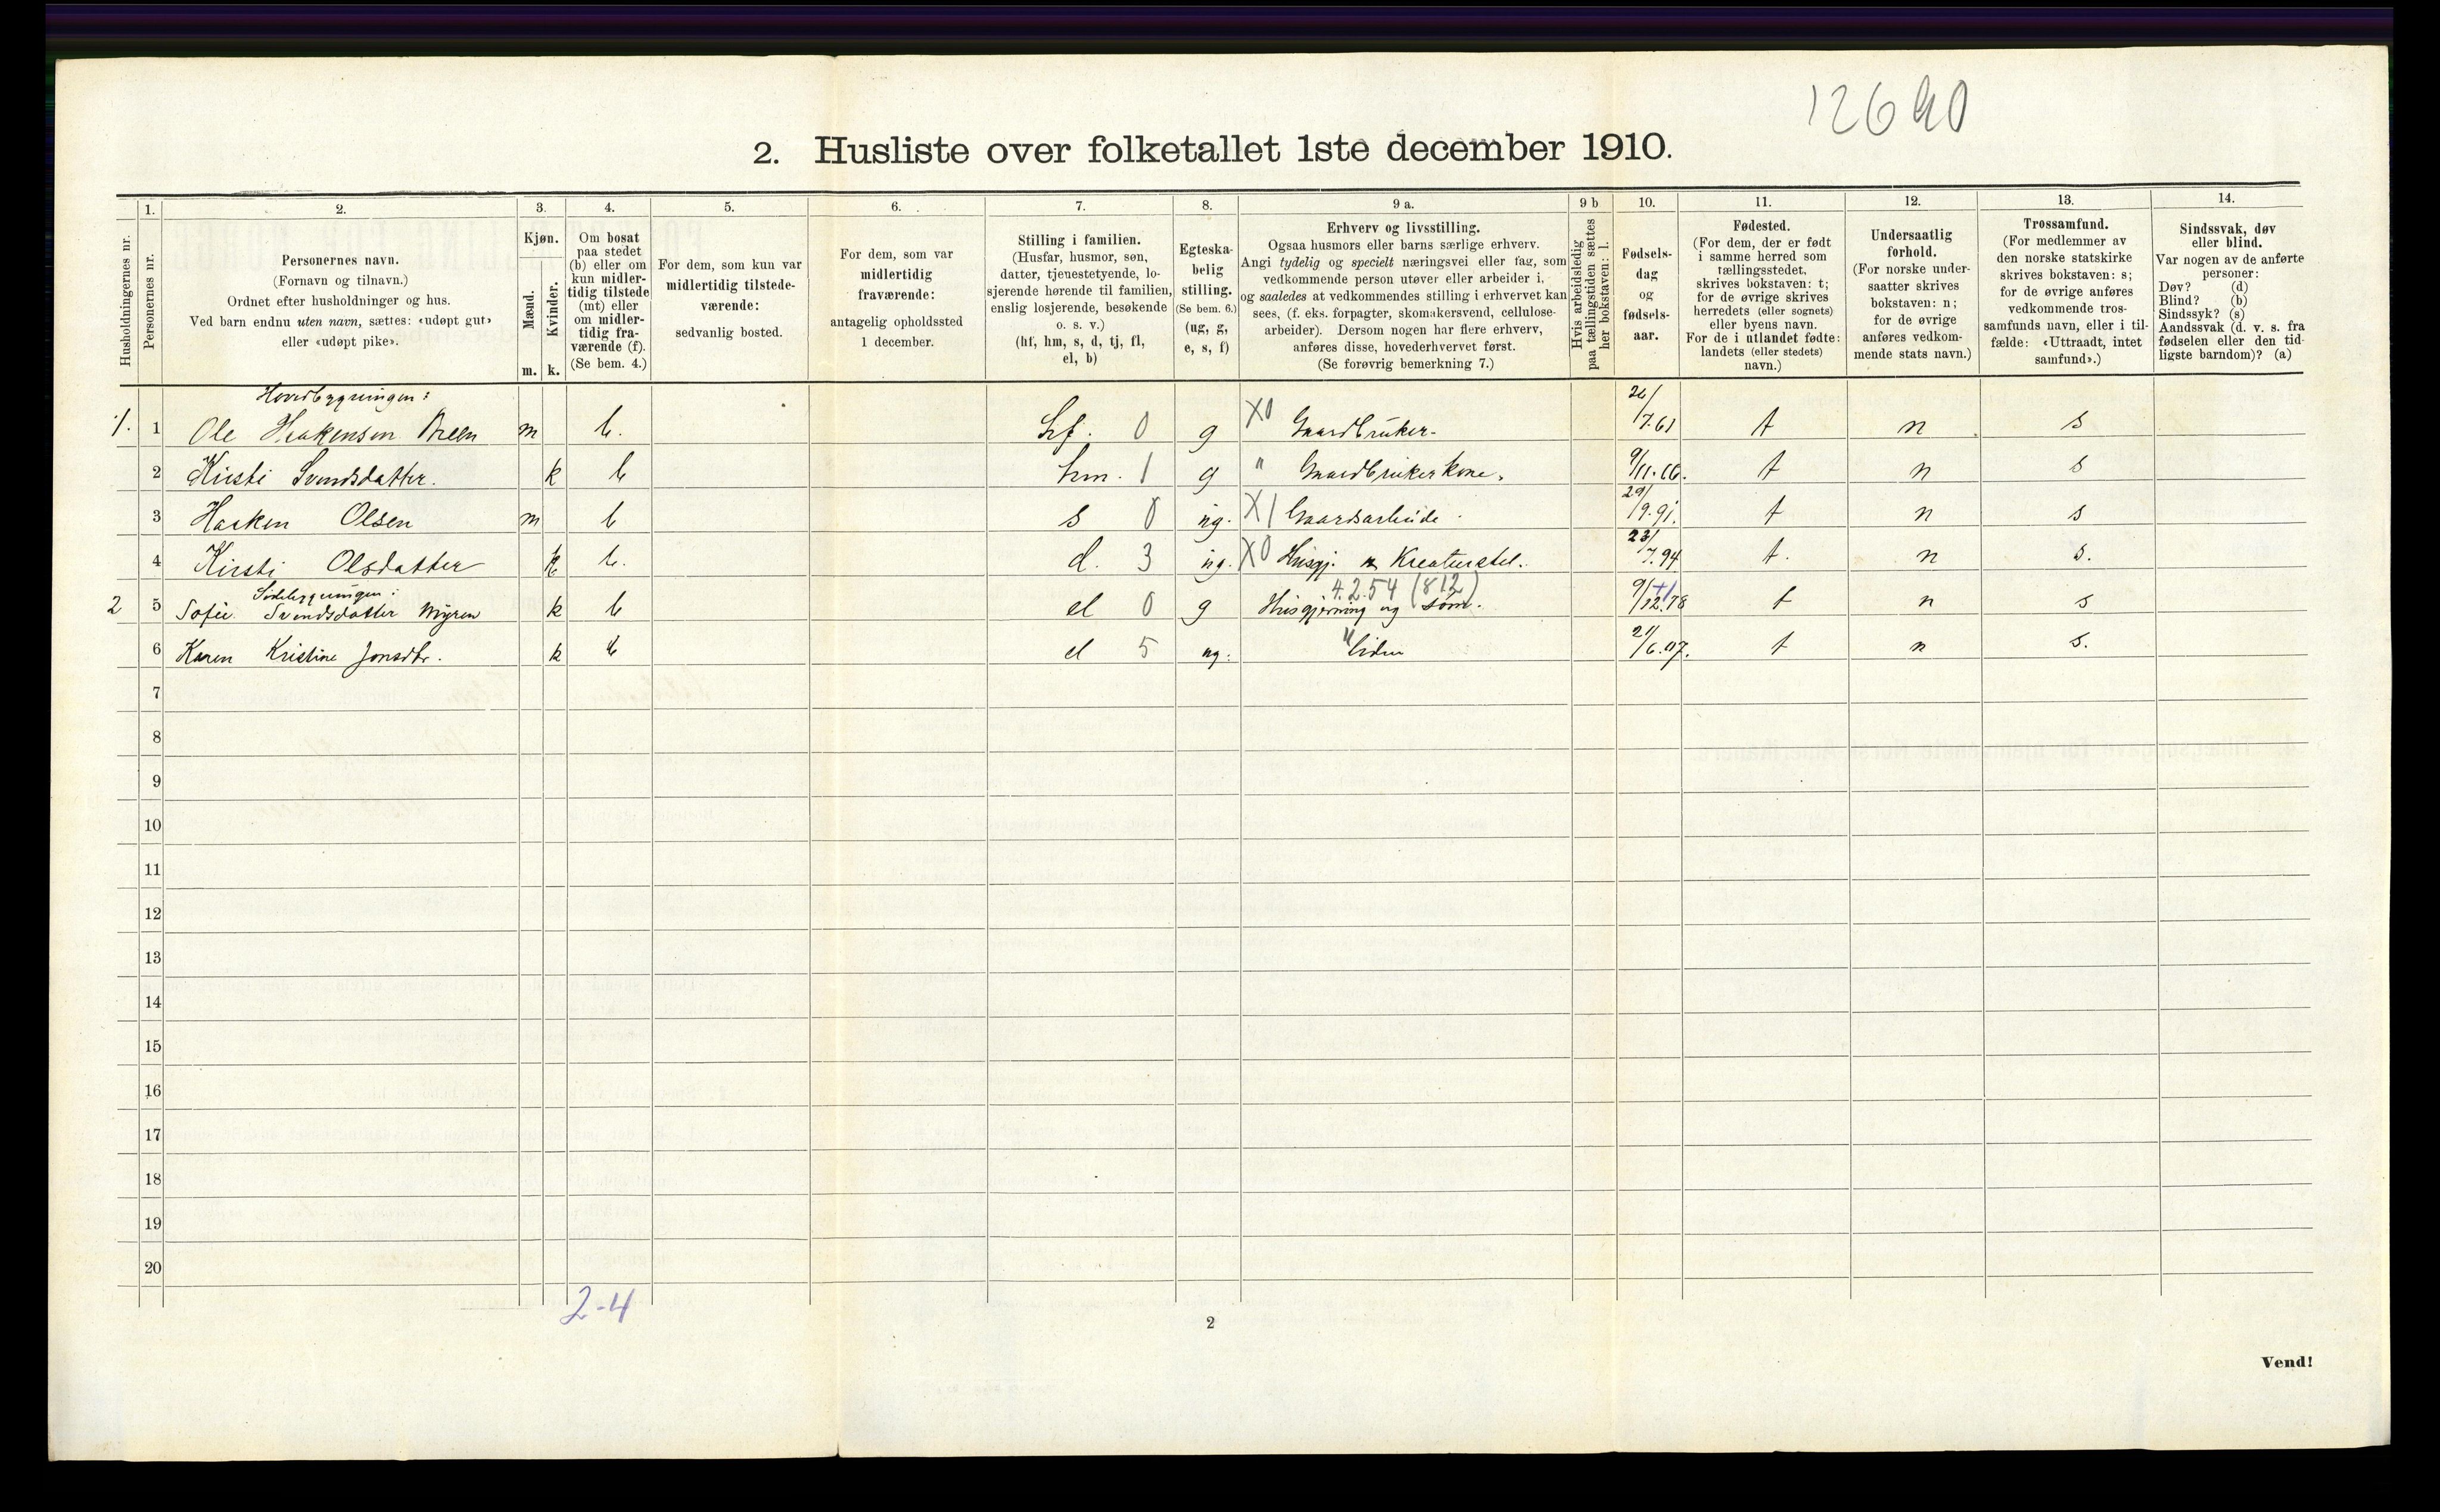 12690
2. Husliste over folketallet 1ste december 1910.
Husholdningernes nr.
1.
Personernes nr.
2.
Personernes navn.
(Fornavn og tilnavn.)
Ordnet efter husholdninger og hus.
Ved barn endnu uten navn, sættes: «udøpt gut»
eller «udøpt pike».
3.
Kjøn.
Mænd.
Kvinder.
m. k.
4.
Om bosat
paa stedet
(b) eller om
kun midler-
tidig tilstede
(mt) eller
om midler-
tidig fra-
værende (f).
(Se bem. 4.)
5.
For dem, som kun var
midlertidig tilstede-
værende:
sedvanlig bosted.
6.
For dem, som var
midlertidig
fraværende:
antagelig opholdssted
1 december.
7.
Stilling i familien.
(Husfar, husmor, søn,
datter, tjenestetyende, lo-
sjerende hørende til familien,
enslig losjerende, besøkende
o. s. v.)
(hf, hm, s, d, tj, fl,
el, b)
8.
Egteska-
belig
stilling.
(Se bem. 6.)
(ug, g,
e, s, f)
9 a.
Erhverv og livsstilling.
Ogsaa husmors eller barns særlige erhverv.
Angi tydelig og specielt næringsvei eller fag, som
vedkommende person utøver eller arbeider i,
og saaledes at vedkommendes stilling i erhvervet kan
sees, (f. eks. forpagter, skomakersvend, cellulose-
arbeider). Dersom nogen har flere erhverv,
anføres disse, hovederhvervet først.
(Se forøvrig bemerkning 7.)
9 b
Hvis arbeidsledig
paa tællingstiden sættes
her bokstaven: l.
10.
Fødsels-
dag
og
fødsels-
aar.
11.
Fødested.
(For dem, der er født
i samme herred som
tællingsstedet,
skrives bokstaven: t;
for de øvrige skrives
herredets (eller sognets)
eller byens navn.
For de i utlandet fødte:
landets (eller stedets)
navn.)
12.
Undersaatlig
forhold.
(For norske under-
saatter skrives
bokstaven: n;
for de øvrige
anføres vedkom-
mende stats navn.)
13.
Trossamfund.
(For medlemmer av
den norske statskirke
skrives bokstaven: s;
for de øvrige anføres
vedkommende tros-
samfunds navn, eller i til-
fælde: «Uttraadt, intet
samfund».)
14.
Sindssvak, døv
eller blind.
Var nogen av de anførte
personer:
Døv? (d)
Blind? (b)
Sindssyk? (s)
Aandssvak (d. v. s. fra
fødselen eller den tid-
ligste barndom)? (a)
Hovedbygningen:
1. 1 Ole Haakensen m b. hf. 0 g X0 Gaardbruker. 7.61 t n s
2 Kirsti Svendsdatter. k b hm. 1 g " Gaardbrukerkone. 9/11. t n s
3 Haaken Olsen m b s 0 ug. X1 Gaardsarbeide. 29/9.91. t n s
4 Kirsti Olsdatter k b. d. 3 ug. X0 Husgj. Kreaturstel. 23/7.94 t. n s.
Sidebygningen: 4.2.54 (812)
2 5 Sofie Svendsdatter Myren k b el 0 g Husgjerning og søm. 9/12.78 t n s
6 Karen Kristine Jonsdtr. k b el 5 ug. 21/6.07. t n s.
7
8
9
10
11
12
13
14
15
16
17
18
19
20
2-4
2
Vend!